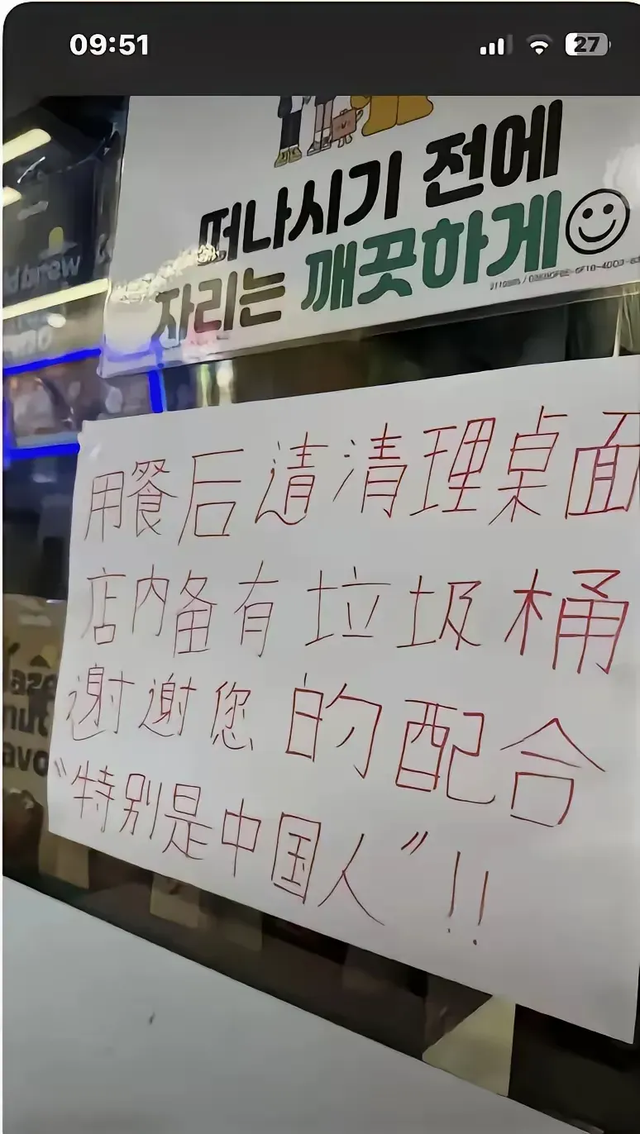 09:51
27
떠나시기 전에
자리는 깨끗하게
用餐后请清理桌面
店内备有垃圾桶
谢谢您的配合
“特别是中国人”!!